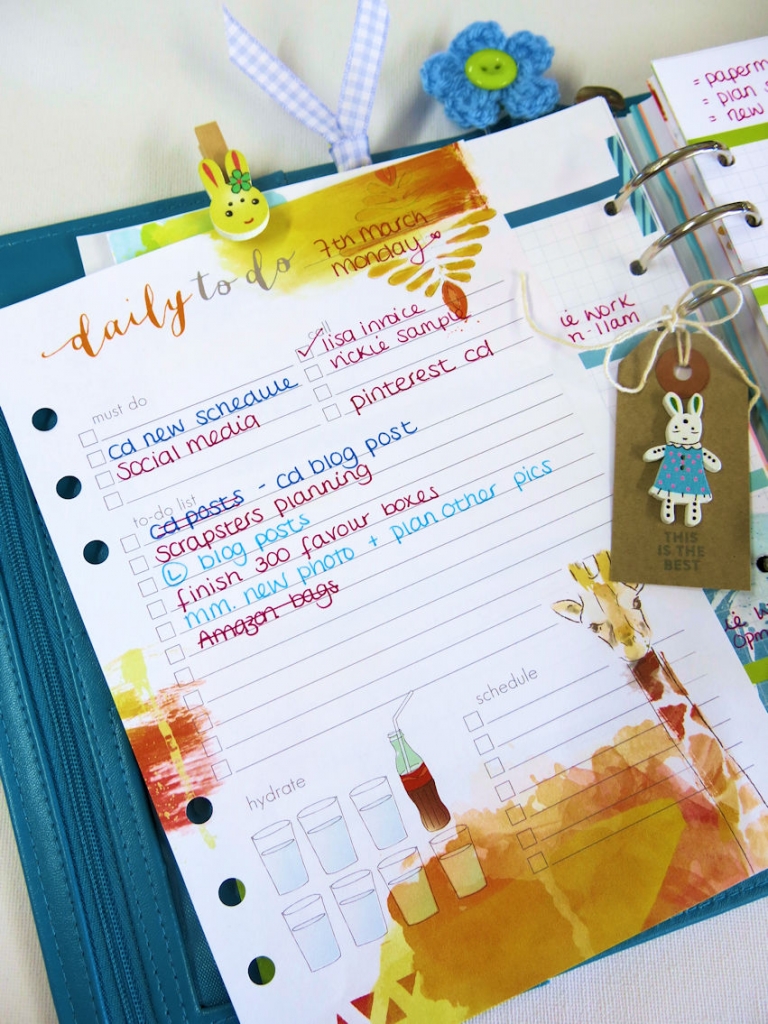 = plan
= new
daily to do
7th march
monday
must do
cd new schedule
social media
call
lisa invoice
vickie sample
pinterest cd
to-do list
cd posts - cd blog post
scrapsters planning
L blog posts
finish 300 favour boxes
mm. new photo + plan other pics
Amazon bags
hydrate
schedule
ie work
11am
THIS
IS THE
BEST